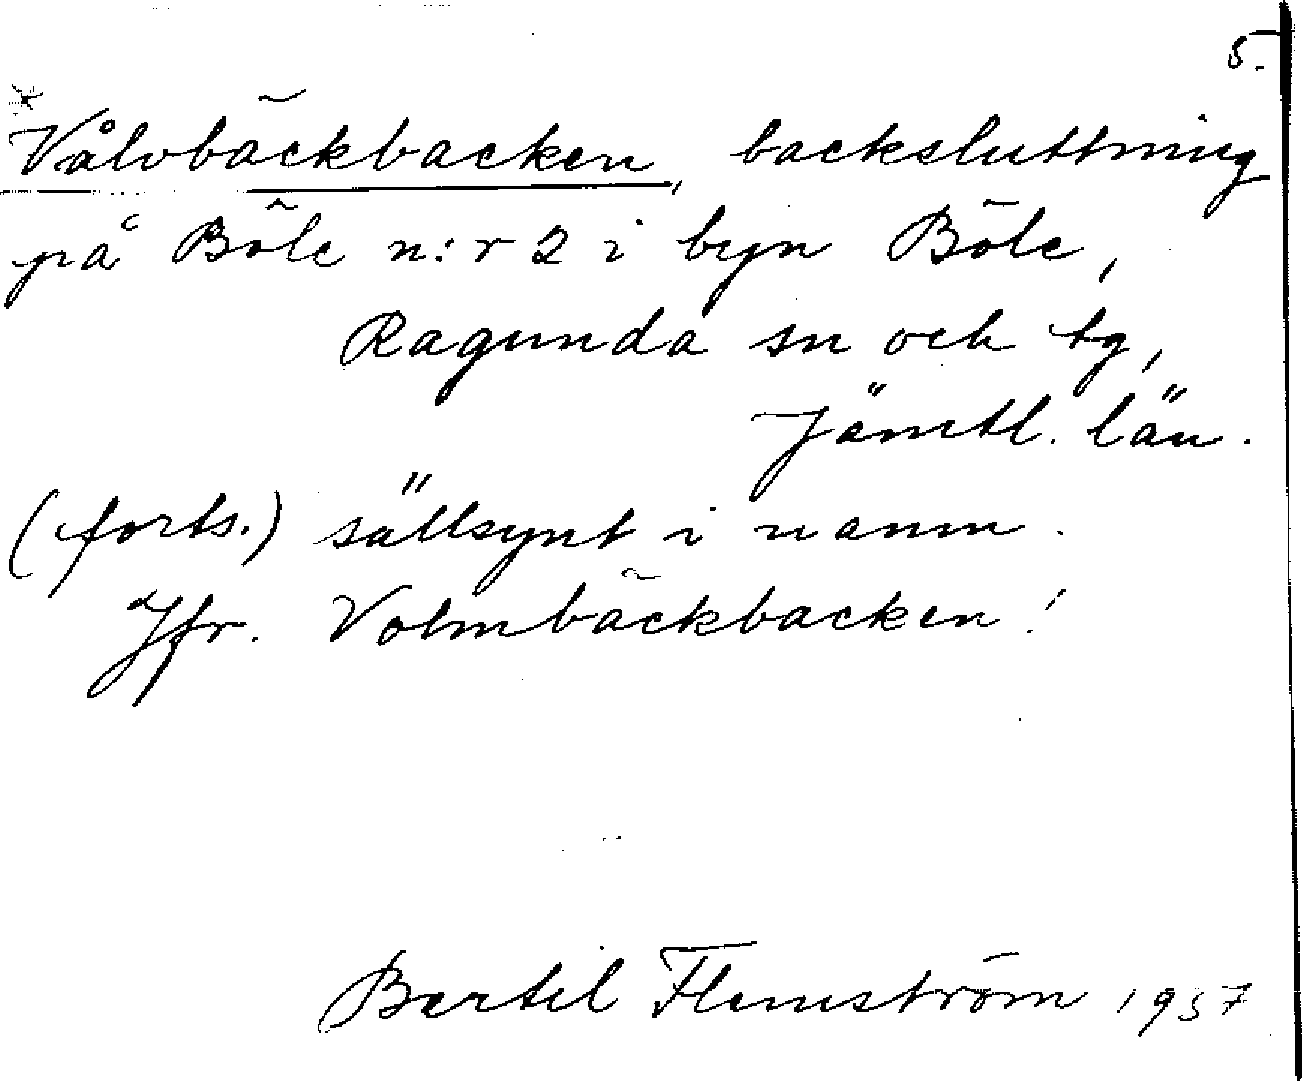 5.
*Vålvbäckbacken, backsluttning
på Böle n:r 2 i byn Böle,
Ragunda sn och tg,
Jämtl. län.
(forts.) sällsynt i namn.
Jfr. Volmbäckbacken!
Bertil Flemström 1957